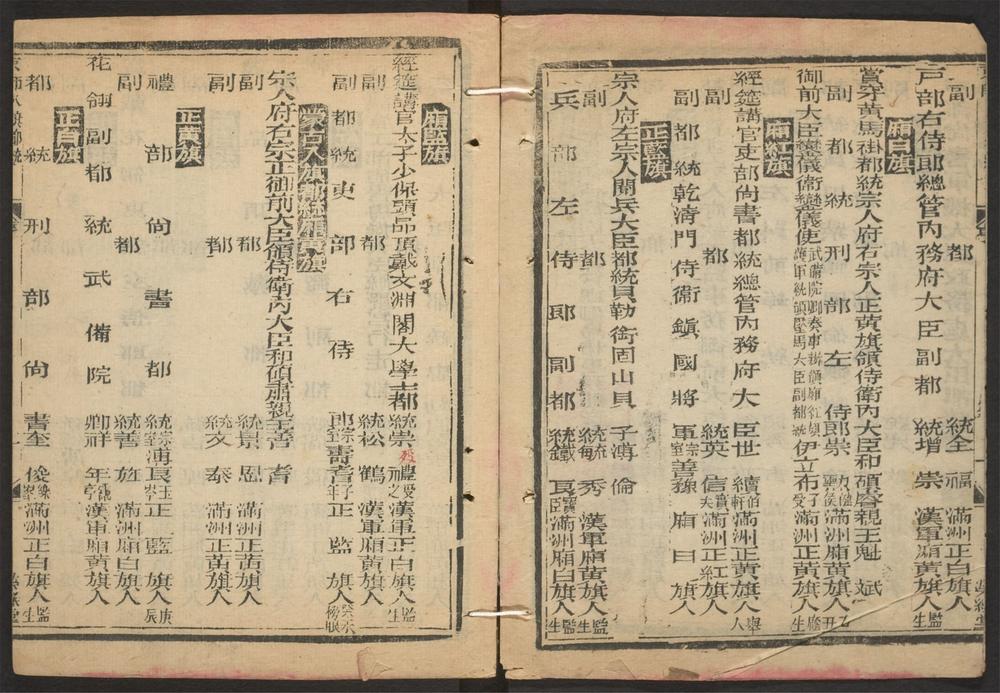 副都統全福滿洲正白旗人監生
戶部右侍郎總管內務府大臣副都統增崇漢軍廂黃旗人監生
廂白旗
賞穿黃馬褂都統宗人府右宗人正黃旗領侍衛內大臣和碩睿親王魁斌
副都統刑部左侍郎崇滿洲廂黃旗人
御前大臣鑾儀衛鑾儀使伊立布滿洲正黃旗人生
廂紅旗
經筵講官吏部尚書都統總管內務府大臣世續伯軒滿洲正黃旗人舉人
副都統英信滿洲正紅旗人
副都統乾清門侍衛鎮國將軍宗室善豫廂白旗人
正藍旗
宗人府左宗人閱兵大臣都統貝勒銜固山貝子溥倫
副都統敏秀漢軍廂黃旗人監生
兵部左侍郎副都統鐵良寶臣滿洲廂白旗人監生
廂藍旗
經筵講官太子少保頭品頂戴文淵閣大學士都統崇禮受之漢軍正白旗人監生
副都統松鶴漢軍廂黃旗人
副都統吏部右侍郎宗室壽耆子年正藍旗人癸未榜眼
蒙古八旗都統廂黃旗
宗人府右宗正御前大臣領侍衛內大臣和碩肅親王善耆
副都統景恩滿洲正黃旗人
副都統文泰滿洲正黃旗人
正黃旗
禮部尚書都統宗室溥良玉岑正藍旗人庚辰
副都統善旌滿洲廂白旗人
花翎副都統武備院卿祥年漢軍廂黃旗人
正白旗
都統刑部尚書奎俊樂峯滿洲正白旗人監生